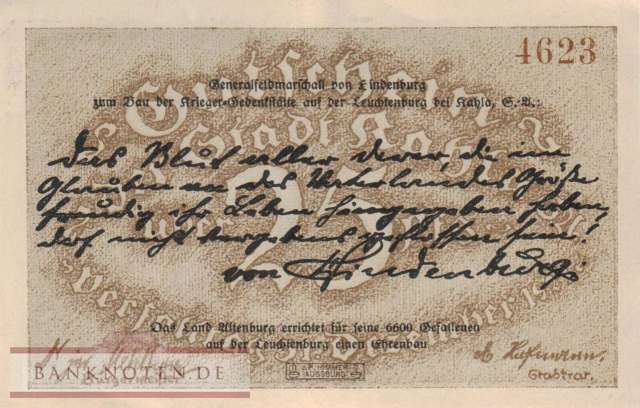 4623
Generalfeldmarschall von Hindenburg
zum Bau der Krieger-Gedenkstätte auf der Leuchtenburg bei Kahla, S.-A.:
Gutschein
Stadt Kahla
25
Das Blut aller derer, die im
Glauben an des Vaterlandes Größe
freudig ihr Leben hingegeben haben,
darf nicht vergebens geflossen sein!
von Hindenburg
Das Land Altenburg errichtet für seine 6600 Gefallenen
auf der Leuchtenburg einen Ehrenbau
Bürgermeister
BANKNOTEN.DE
AUGSBURG